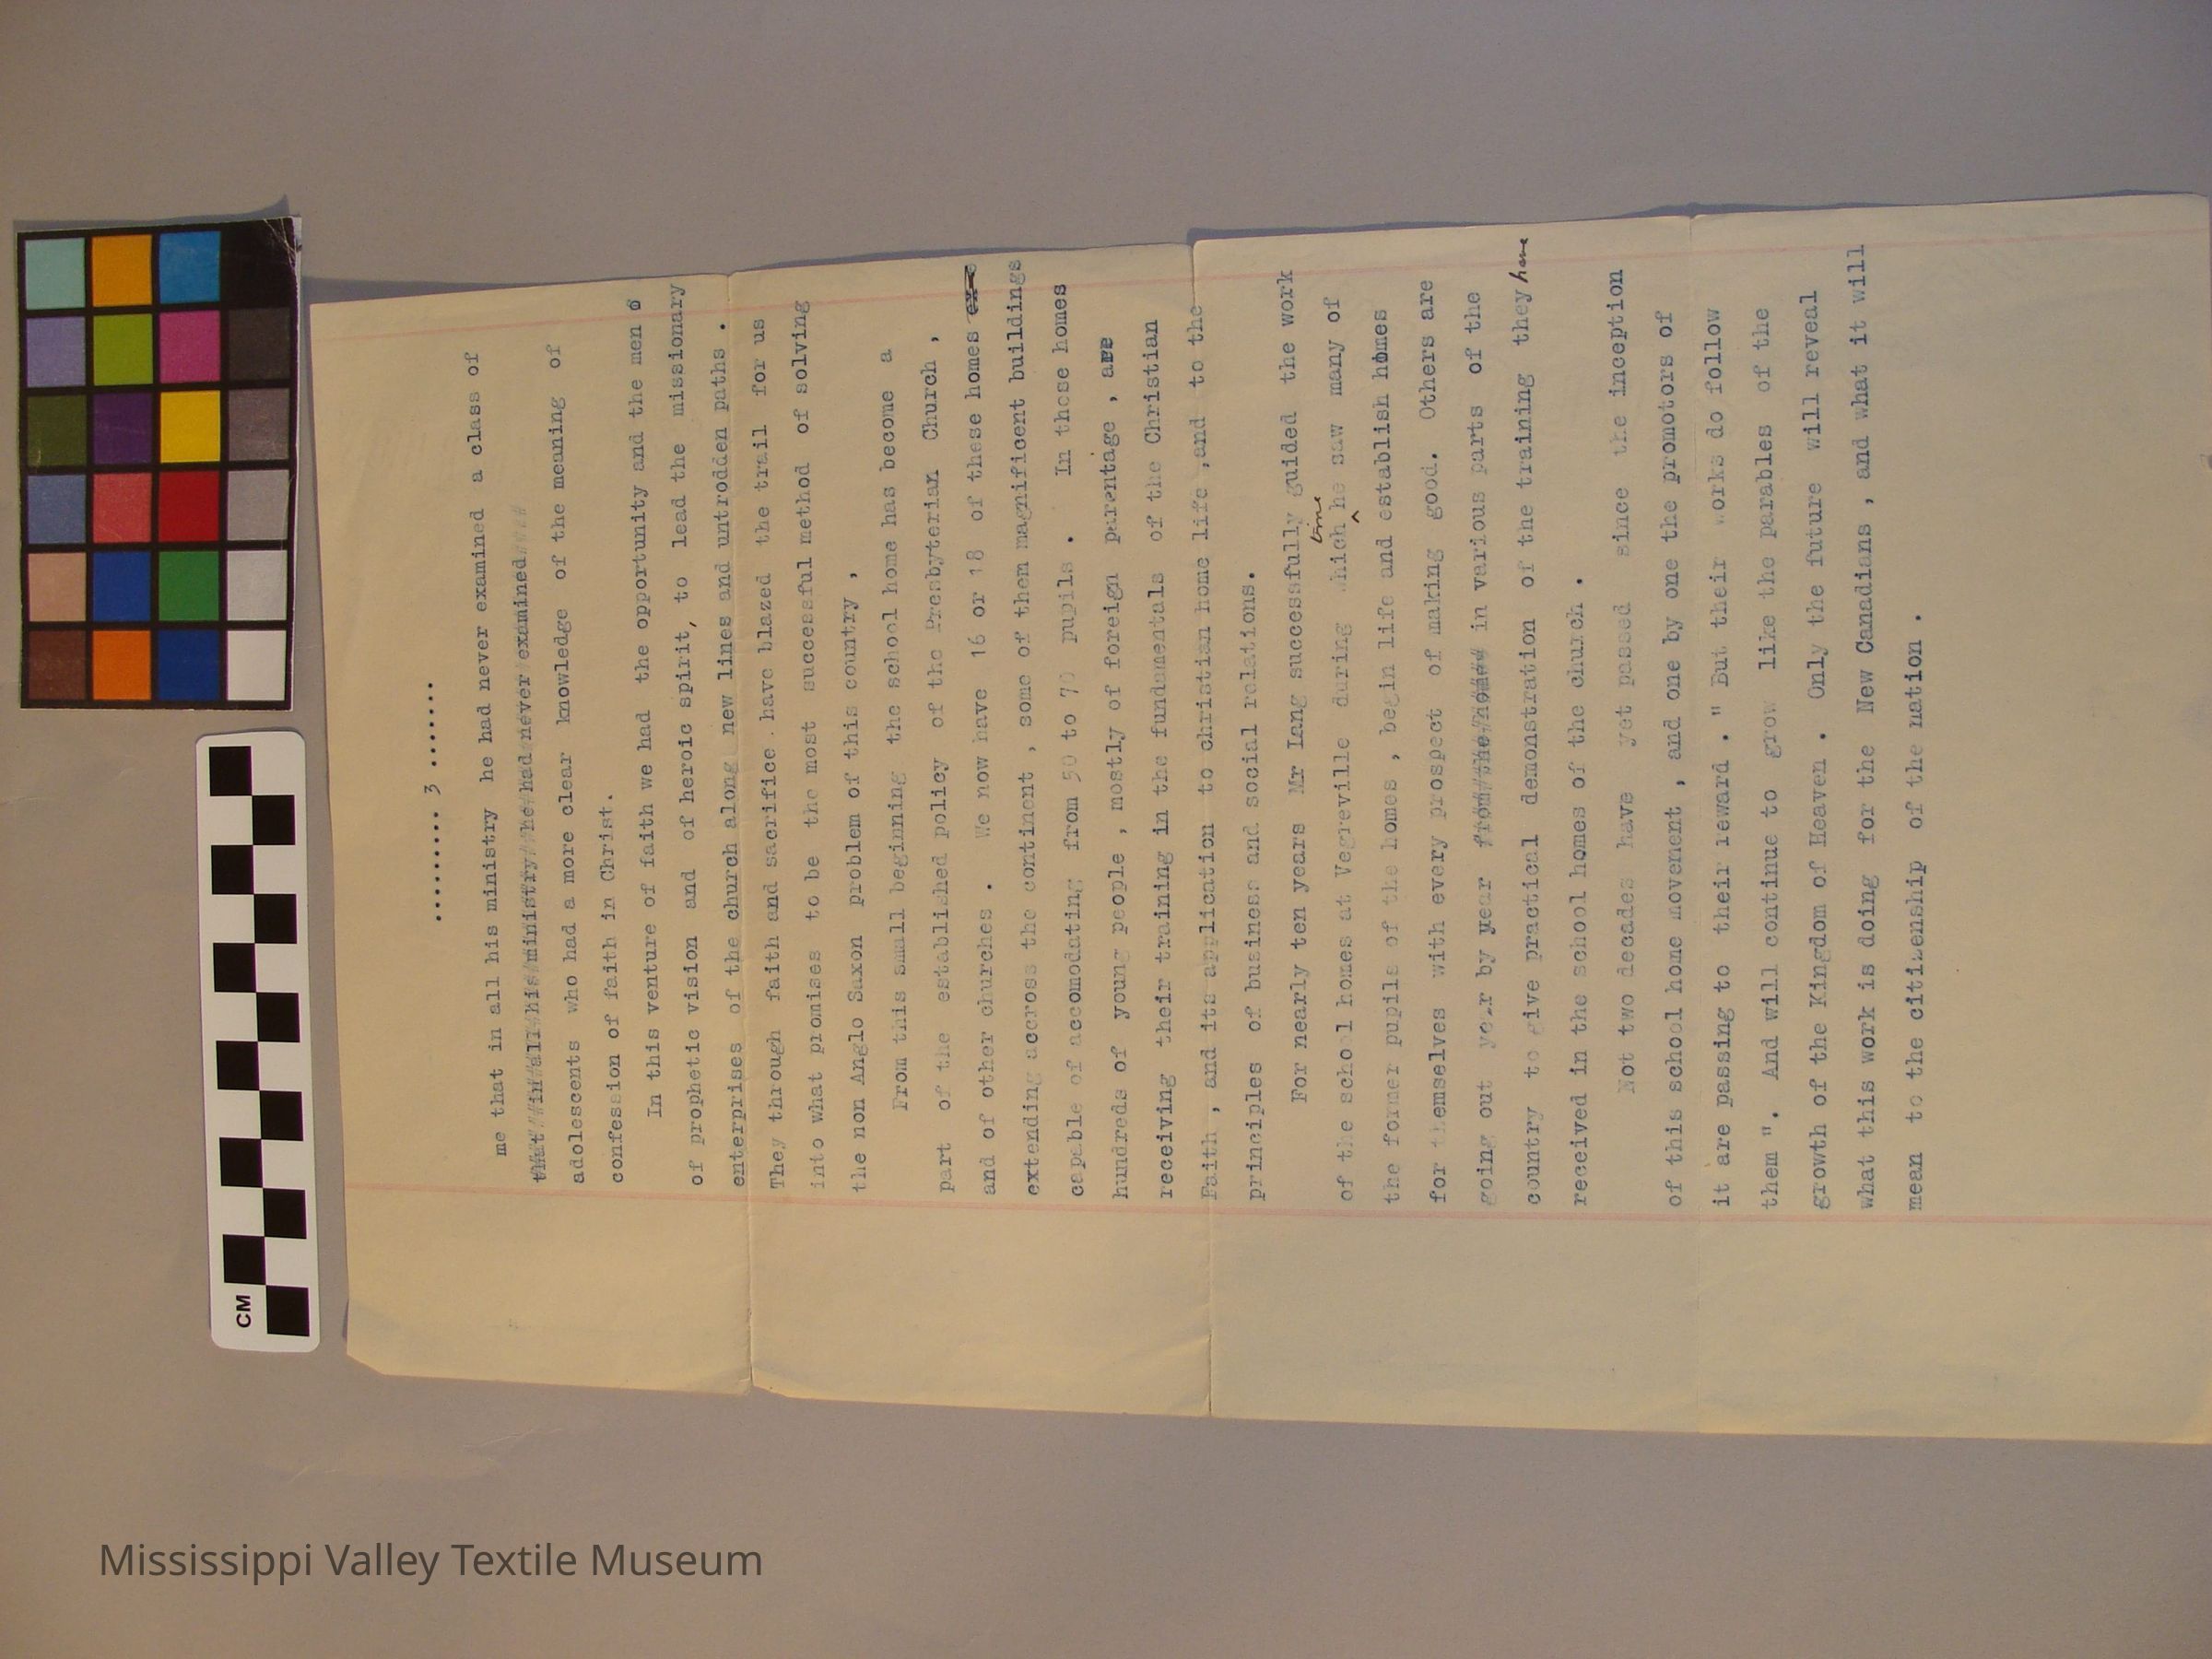 ........ 3 .......
me that in all his ministry he had never examined a class of
that in all his ministry he had never examined
adolescents who had a more clear knowledge of the meaning of
confession of faith in Christ.
In this venture of faith we had the opportunity and the men
of prophetic vision and of heroic spirit, to lead the missionary
enterprises of the church along new lines and untrodden paths .
They through faith and sacrifice . have blazed the trail for us
into what promises to be the most successful method of solving
the non Anglo Saxon problem of this country ,
From this small beginning the school home has become a
part of the established policy of the Presbyterian Church ,
and of other churches . We now have 16 or 18 of these homes
extending accross the continent , some of them magnificent buildings
capable of accomodating from 50 to 70 pupils . In these homes
hundreds of young people , mostly of foreign parentage , are
receiving their training in the fundamentals of the Christian
Faith , and its application to christian home life ,and to the
principles of business and social relations.
For nearly ten years Mr Lang successfully guided the work
time
of the school homes at Vegreville during which ^ he saw many of
the former pupils of the homes , begin life and establish homes
for themselves with every prospect of making good. Others are
going out year by year from the homes in various parts of the
country to give practical demonstration of the training they have
received in the school homes of the church .
Not two decades have yet passed since the inception
of this school home movement , and one by one the promotors of
it are passing to their reward . " But their works do follow
them ". And will continue to grow like the parables of the
growth of the Kingdom of Heaven . Only the future will reveal
what this work is doing for the New Canadians , and what it will
mean to the citizenship of the nation .
CM
Mississippi Valley Textile Museum